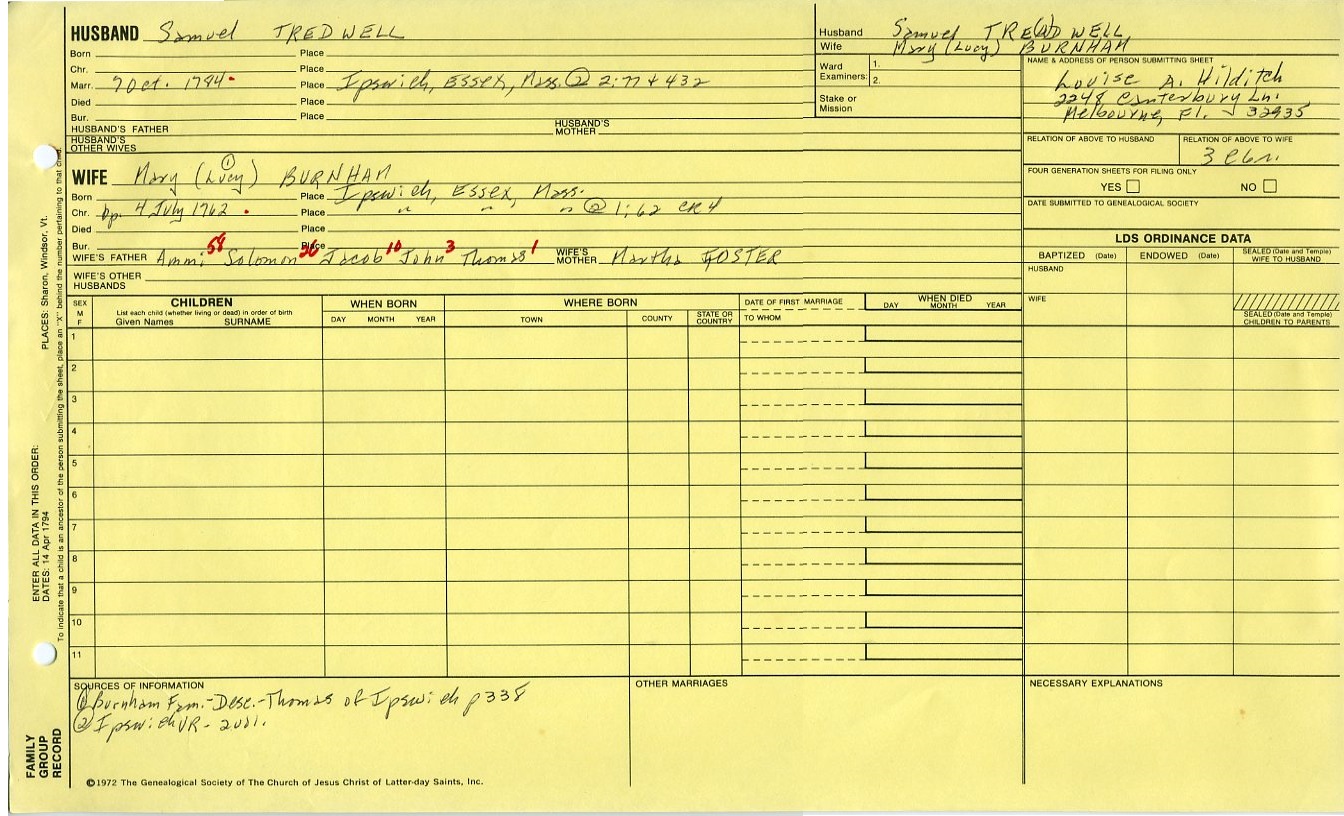 HUSBAND Samuel TREDWELL
Born Place
Chr. Place
Marr. 7 Oct. 1784. Place Ipswich, Essex, Mass. ② 2:77 & 432
Died Place
Bur. Place
HUSBAND'S FATHER HUSBAND'S MOTHER
HUSBAND'S OTHER WIVES
①
WIFE Mary (Lucy) BURNHAM
Born Place Ipswich, Essex, Mass.
Chr. bp. 4 July 1762. Place " " " ② 1:62 CR4
Died Place
Bur. Place
WIFE'S FATHER Ammi 58 Solomon 26 Jacob 10 John 3 Thomas 1 WIFE'S MOTHER Martha FOSTER
WIFE'S OTHER HUSBANDS
Husband Samuel TRE(A)DWELL
Wife Mary (Lucy) BURNHAM
Ward Examiners: 1.
2.
Stake or Mission
NAME & ADDRESS OF PERSON SUBMITTING SHEET
Louise A. Hilditch
2248 Canterbury Ln.
Melbourne, Fl. 32935
RELATION OF ABOVE TO HUSBAND RELATION OF ABOVE TO WIFE
FOUR GENERATION SHEETS FOR FILING ONLY
YES NO
DATE SUBMITTED TO GENEALOGICAL SOCIETY
LDS ORDINANCE DATA
BAPTIZED (Date) ENDOWED (Date) SEALED (Date and Temple) WIFE TO HUSBAND
HUSBAND
WIFE
SEALED (Date and Temple) CHILDREN TO PARENTS
SEX M F
CHILDREN
List each child (whether living or dead) in order of birth
Given Names SURNAME
WHEN BORN
DAY MONTH YEAR
WHERE BORN
TOWN COUNTY STATE OR COUNTRY
DATE OF FIRST MARRIAGE
TO WHOM
WHEN DIED
DAY MONTH YEAR
1
2
3
4
5
6
7
8
9
10
11
SOURCES OF INFORMATION
① Burnham Fam.-Desc.-Thomas of Ipswich p 338
② Ipswich VR - 2vol.
OTHER MARRIAGES
NECESSARY EXPLANATIONS
©1972 The Genealogical Society of The Church of Jesus Christ of Latter-day Saints, Inc.
FAMILY GROUP RECORD
ENTER ALL DATA IN THIS ORDER:
DATES: 14 Apr 1794 PLACES: Sharon, Windsor, Vt.
To indicate that a child is an ancestor of the person submitting the sheet, place an "X" behind the number pertaining to that child.